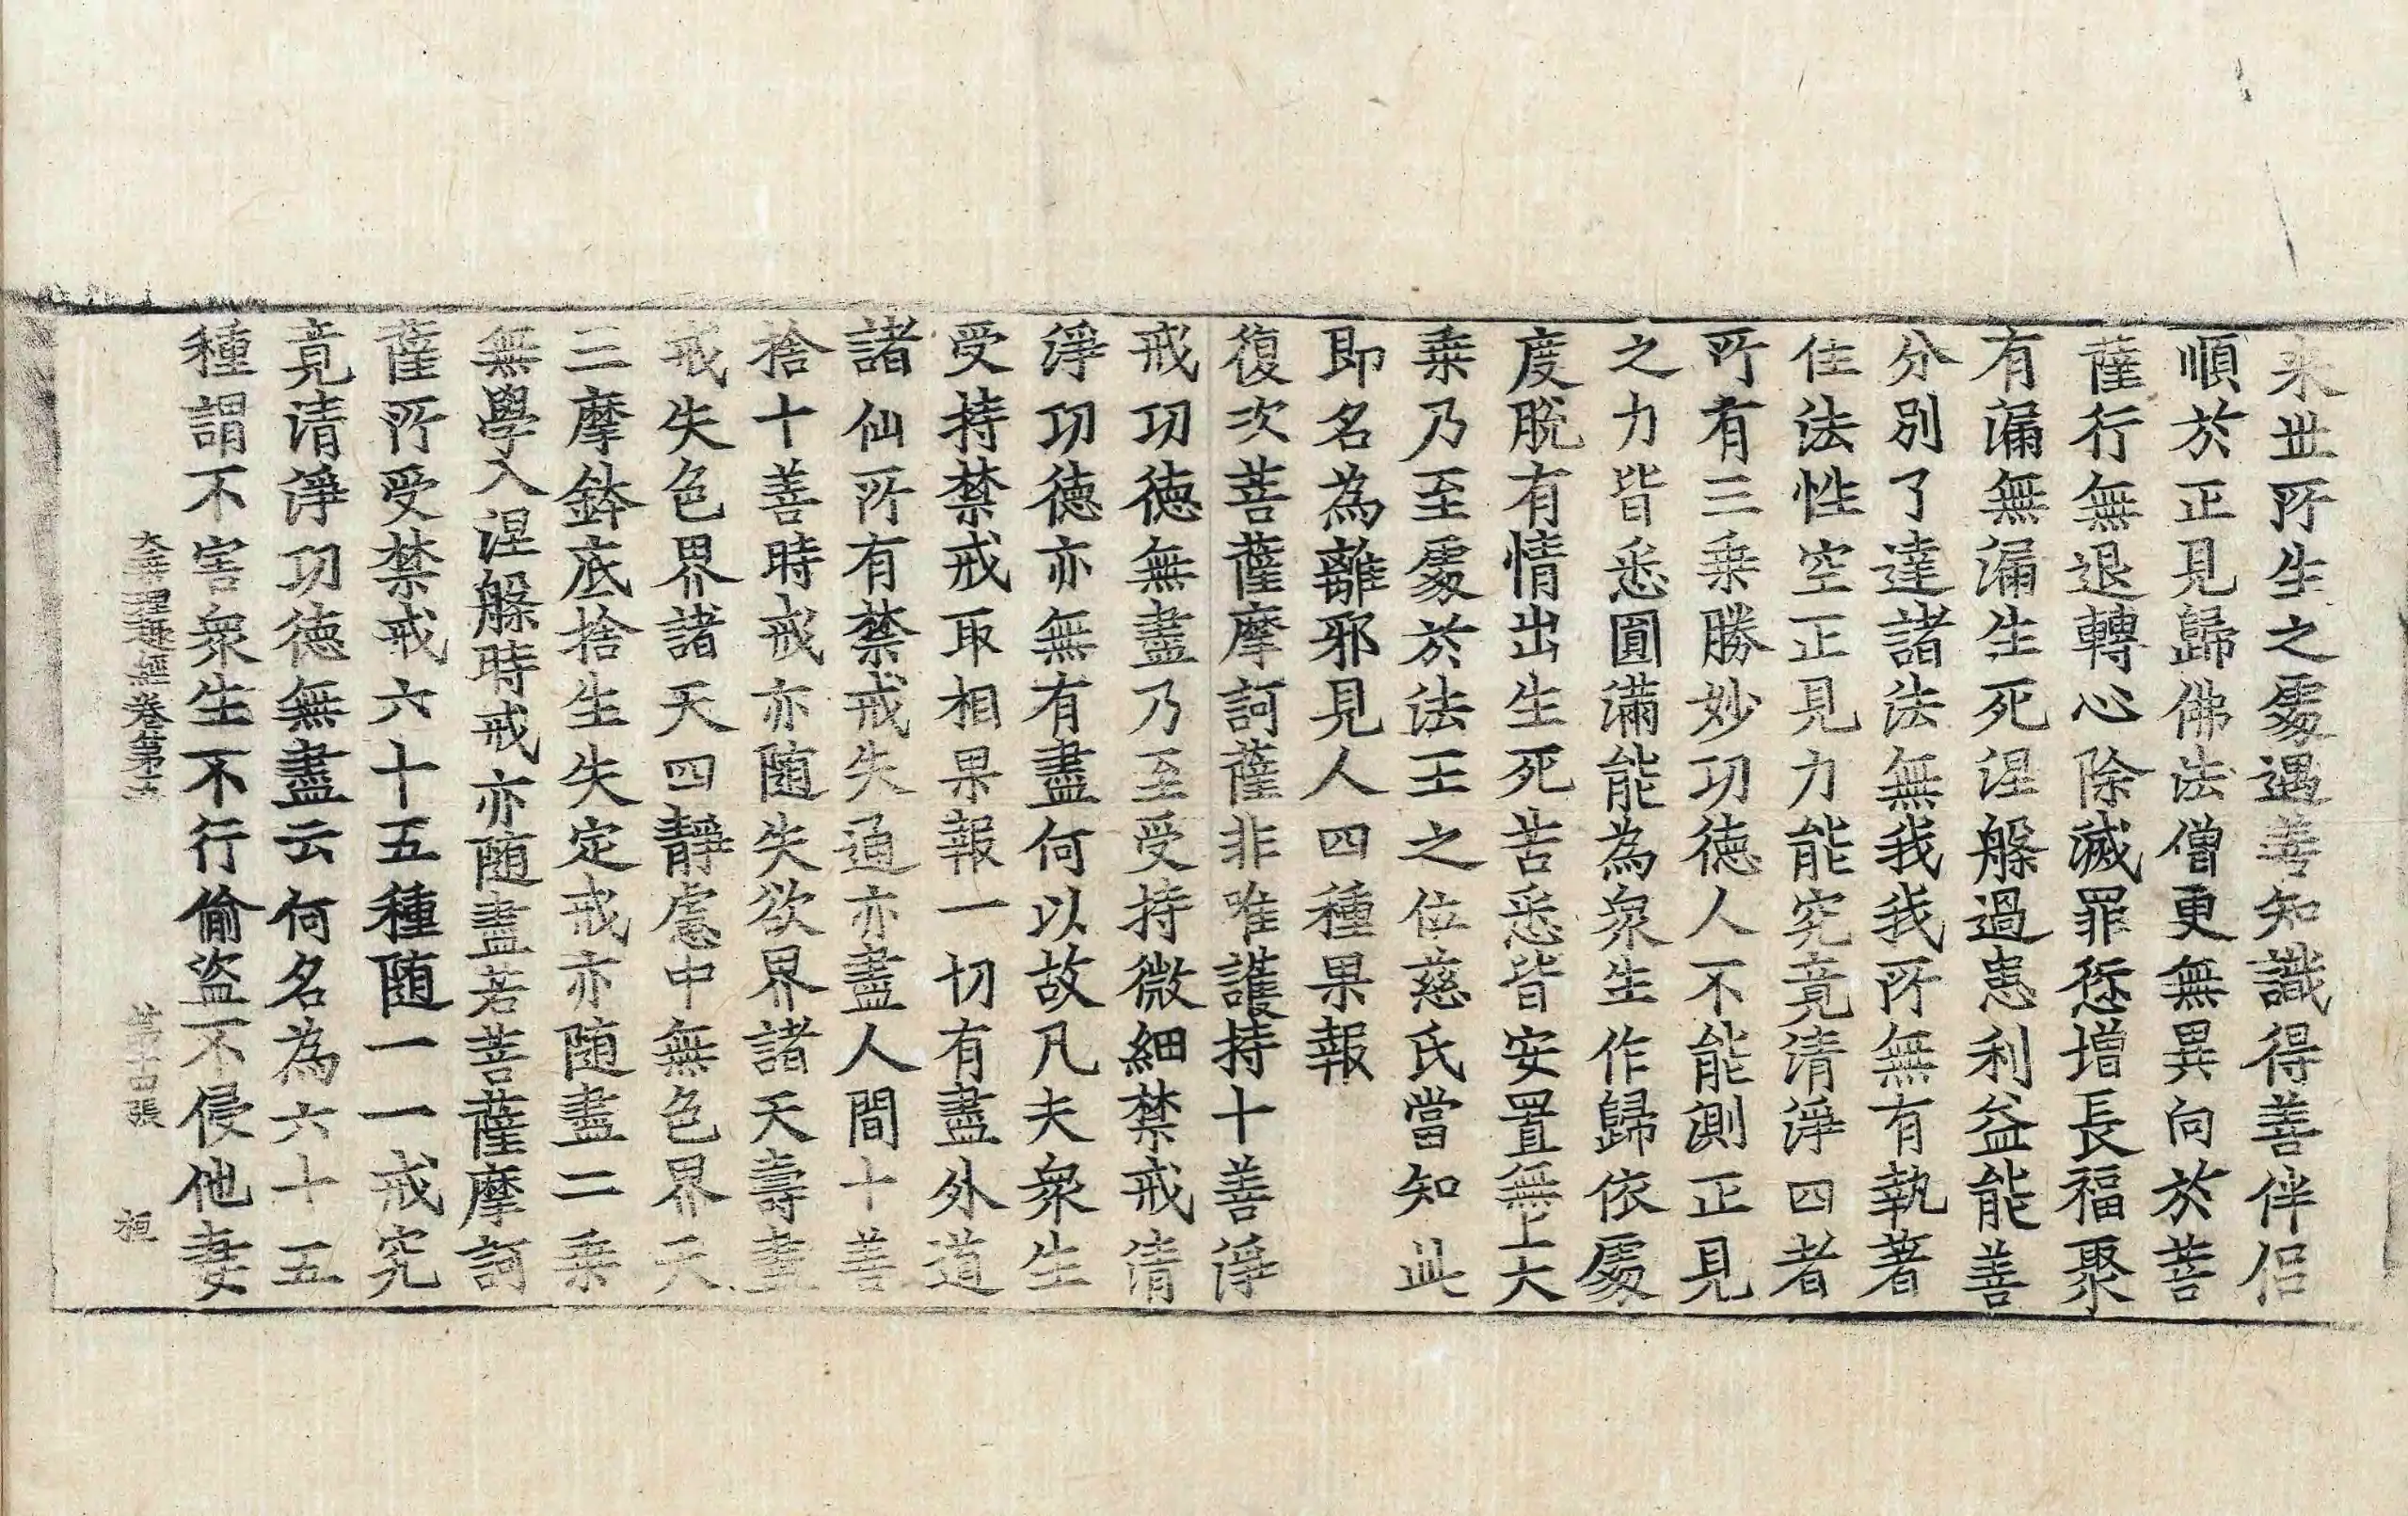 来世所生之處遇善知識得善伴侶
順於正見歸佛法僧更無異向於菩
薩行無退轉心除滅罪愆增長福聚
有漏無漏生死涅槃過患利益能善
分別了達諸法無我我所無有執著
住法性空正見力能究竟清淨四者
所有三乗勝妙功德人不能測正見
之力皆悉圓滿能為衆生作歸依處
度脫有情出生死苦悉皆安置無上大
乗乃至處於法王之位慈氏當知此
即名為離邪見人四種果報
復次菩薩摩訶薩非唯護持十善淨
戒功德無盡乃至受持微細禁戒清
淨功德亦無有盡何以故凡夫衆生
受持禁戒取相果報一切有盡外道
諸仙所有禁戒失通亦盡人間十善
捨十善時戒亦随失欲界諸天壽盡
戒失色界諸天四靜慮中無色界天
三摩鉢底捨生失定戒亦随盡二乗
無學入涅槃時戒亦随盡若菩薩摩訶
薩所受禁戒六十五種随一一戒究
竟清淨功德無盡云何名為六十五
種謂不害衆生不行偷盗不侵他妻
大乗理趣經卷第五 第十四張 桓